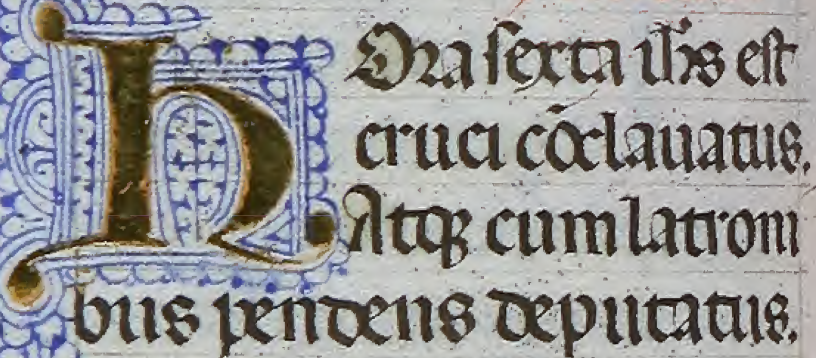 HOra sexta ih̅s est
cruci co̅clauatus.
Atq̲ cum latroni
bus pendens deputatus.